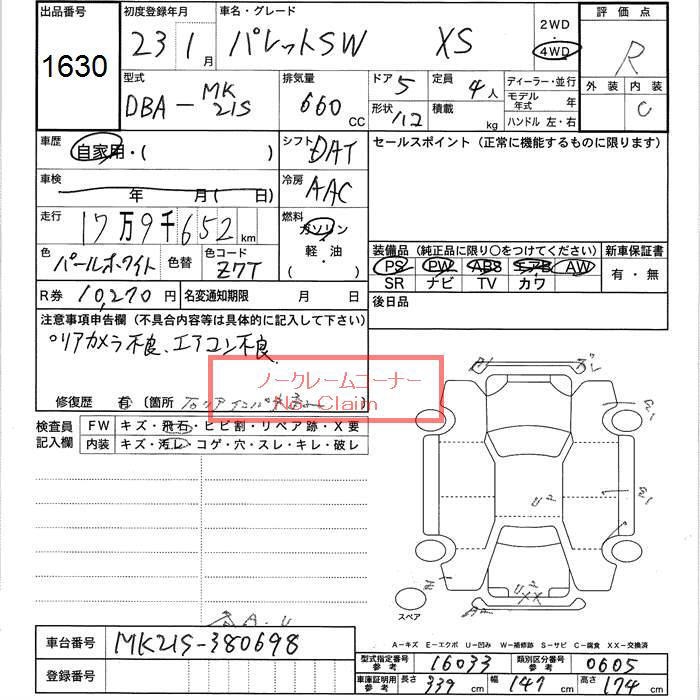 出品番号
1630
初度登録年月
23 1 月
車名・グレード
パレットSW XS
2WD
4WD
評価点
R
外装 内装
C
型式
DBA－MK21S
排気量
660 CC
ドア 5
形状 /12
定員 4 人
積載 kg
ディーラー・並行
モデル年式 年
ハンドル 左・右
車歴
自家用・( )
シフト DAT
セールスポイント（正常に機能するものに限ります）
車検
年 月( 日)
冷房 AAC
走行
17万9千652 km
燃料
ガソリン
軽・油
( )
色 パールホワイト
色替
色コード Z7T
装備品（純正品に限り○をつけてください）
新車保証書
PS PW ABS エアB AW
SR ナビ TV カワ
有・無
R券 10,270 円
名変通知期限 月 日
後日品
注意事項申告欄（不具合内容等は具体的に記入して下さい）
リアカメラ不良、エアコン不良
ノークレームコーナー
No Claim
修復歴 有 (箇所
検査員記入欄
FW キズ・飛石・ヒビ割・リペア跡・X要
内装 キズ・汚レ・コゲ・穴・スレ・キレ・破レ
スペア
U2
XX
A U
車台番号 MK21S-380698
A－キズ E－エクボ U－凹み W－補修跡 S－サビ C－腐食 XX－交換済
型式指定番号参考 16033
類別区分番号参考 0605
登録番号
車庫証明用参考 長さ 339 cm 幅 147 cm 高さ 174 cm